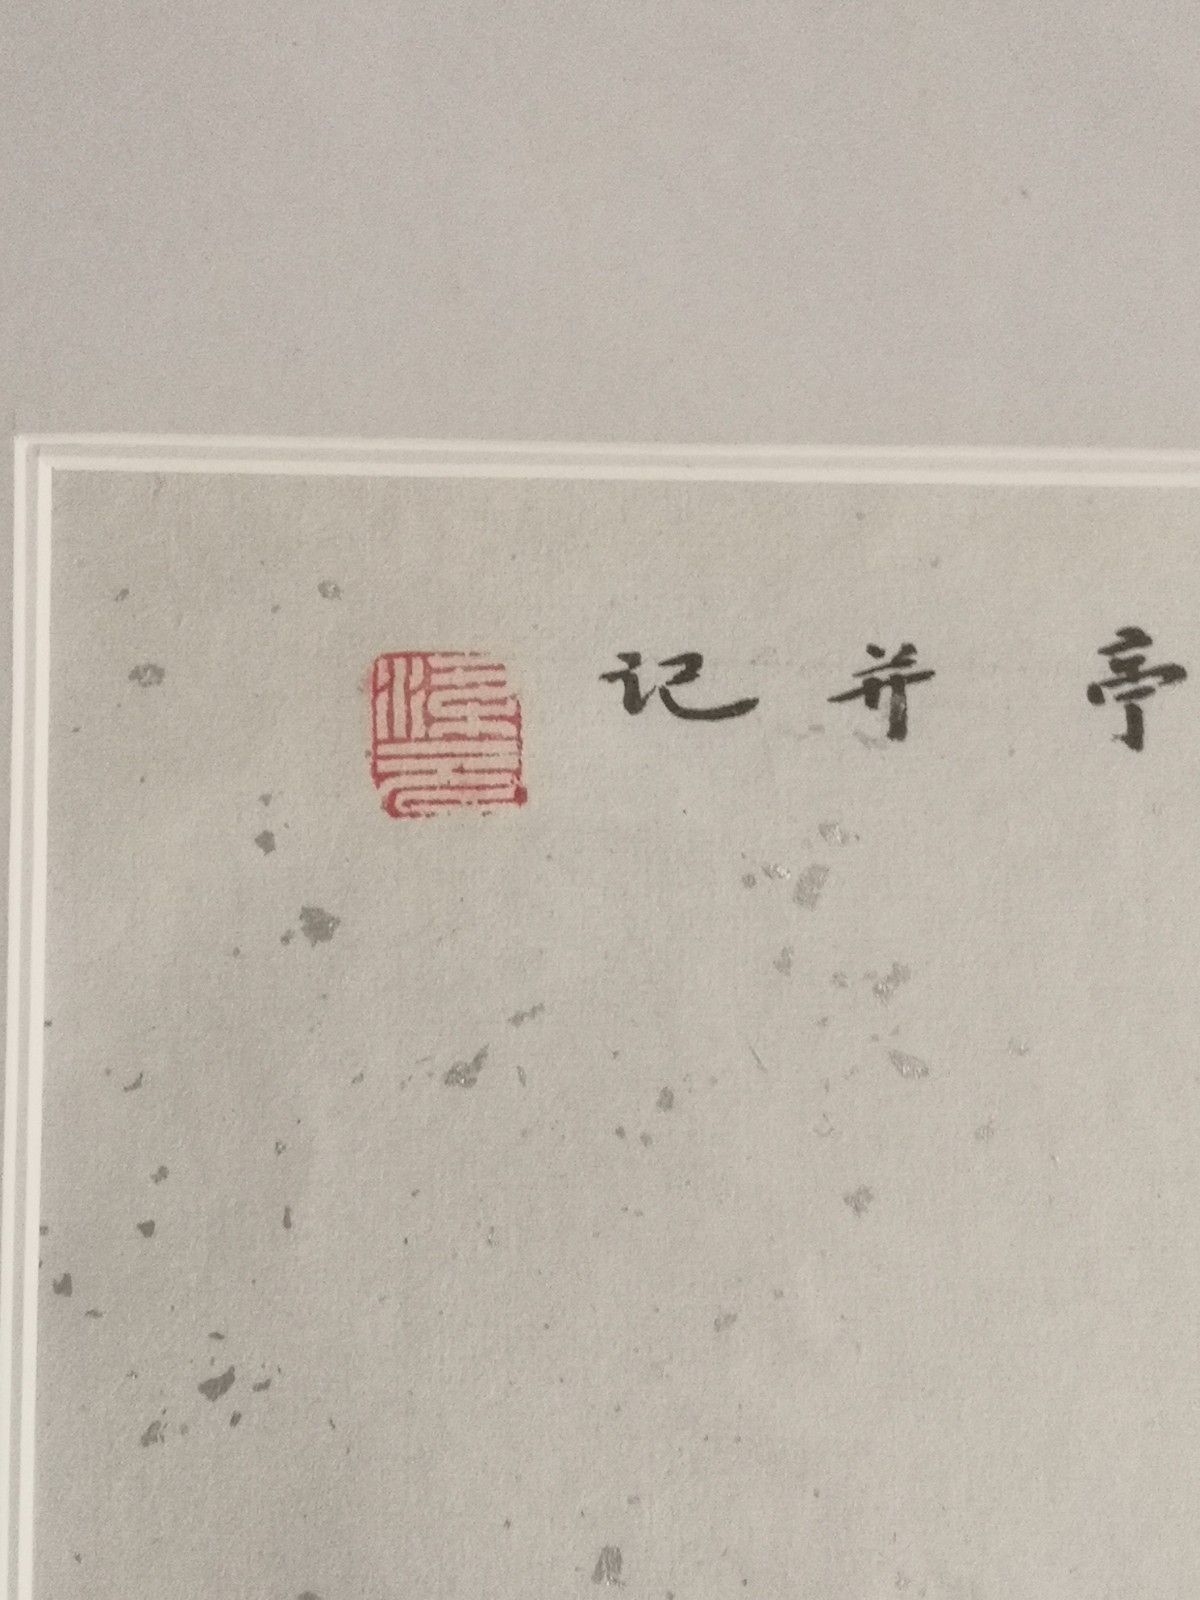 亭并记